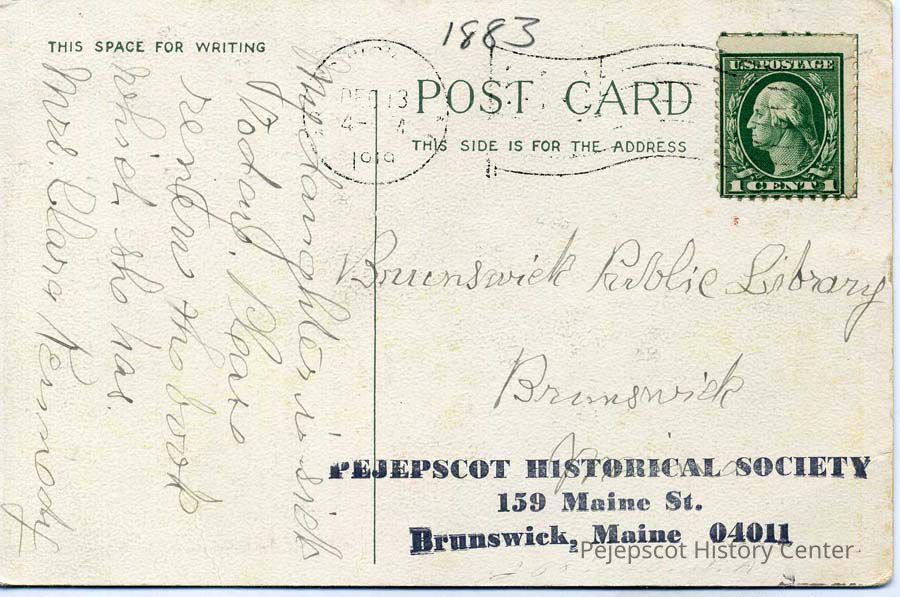 1883
THIS SPACE FOR WRITING
POST CARD
THIS SIDE IS FOR THE ADDRESS
U.S. POSTAGE
1 CENT 1
DEC 13
4-
1919
My daughter is sick
today. Please
renew the book
which she has.
Mrs. Clara Kennedy
Brunswick Public Library
Brunswick
PEJEPSCOT HISTORICAL SOCIETY
159 Maine St.
Brunswick, Maine 04011
Pejepscot History Center